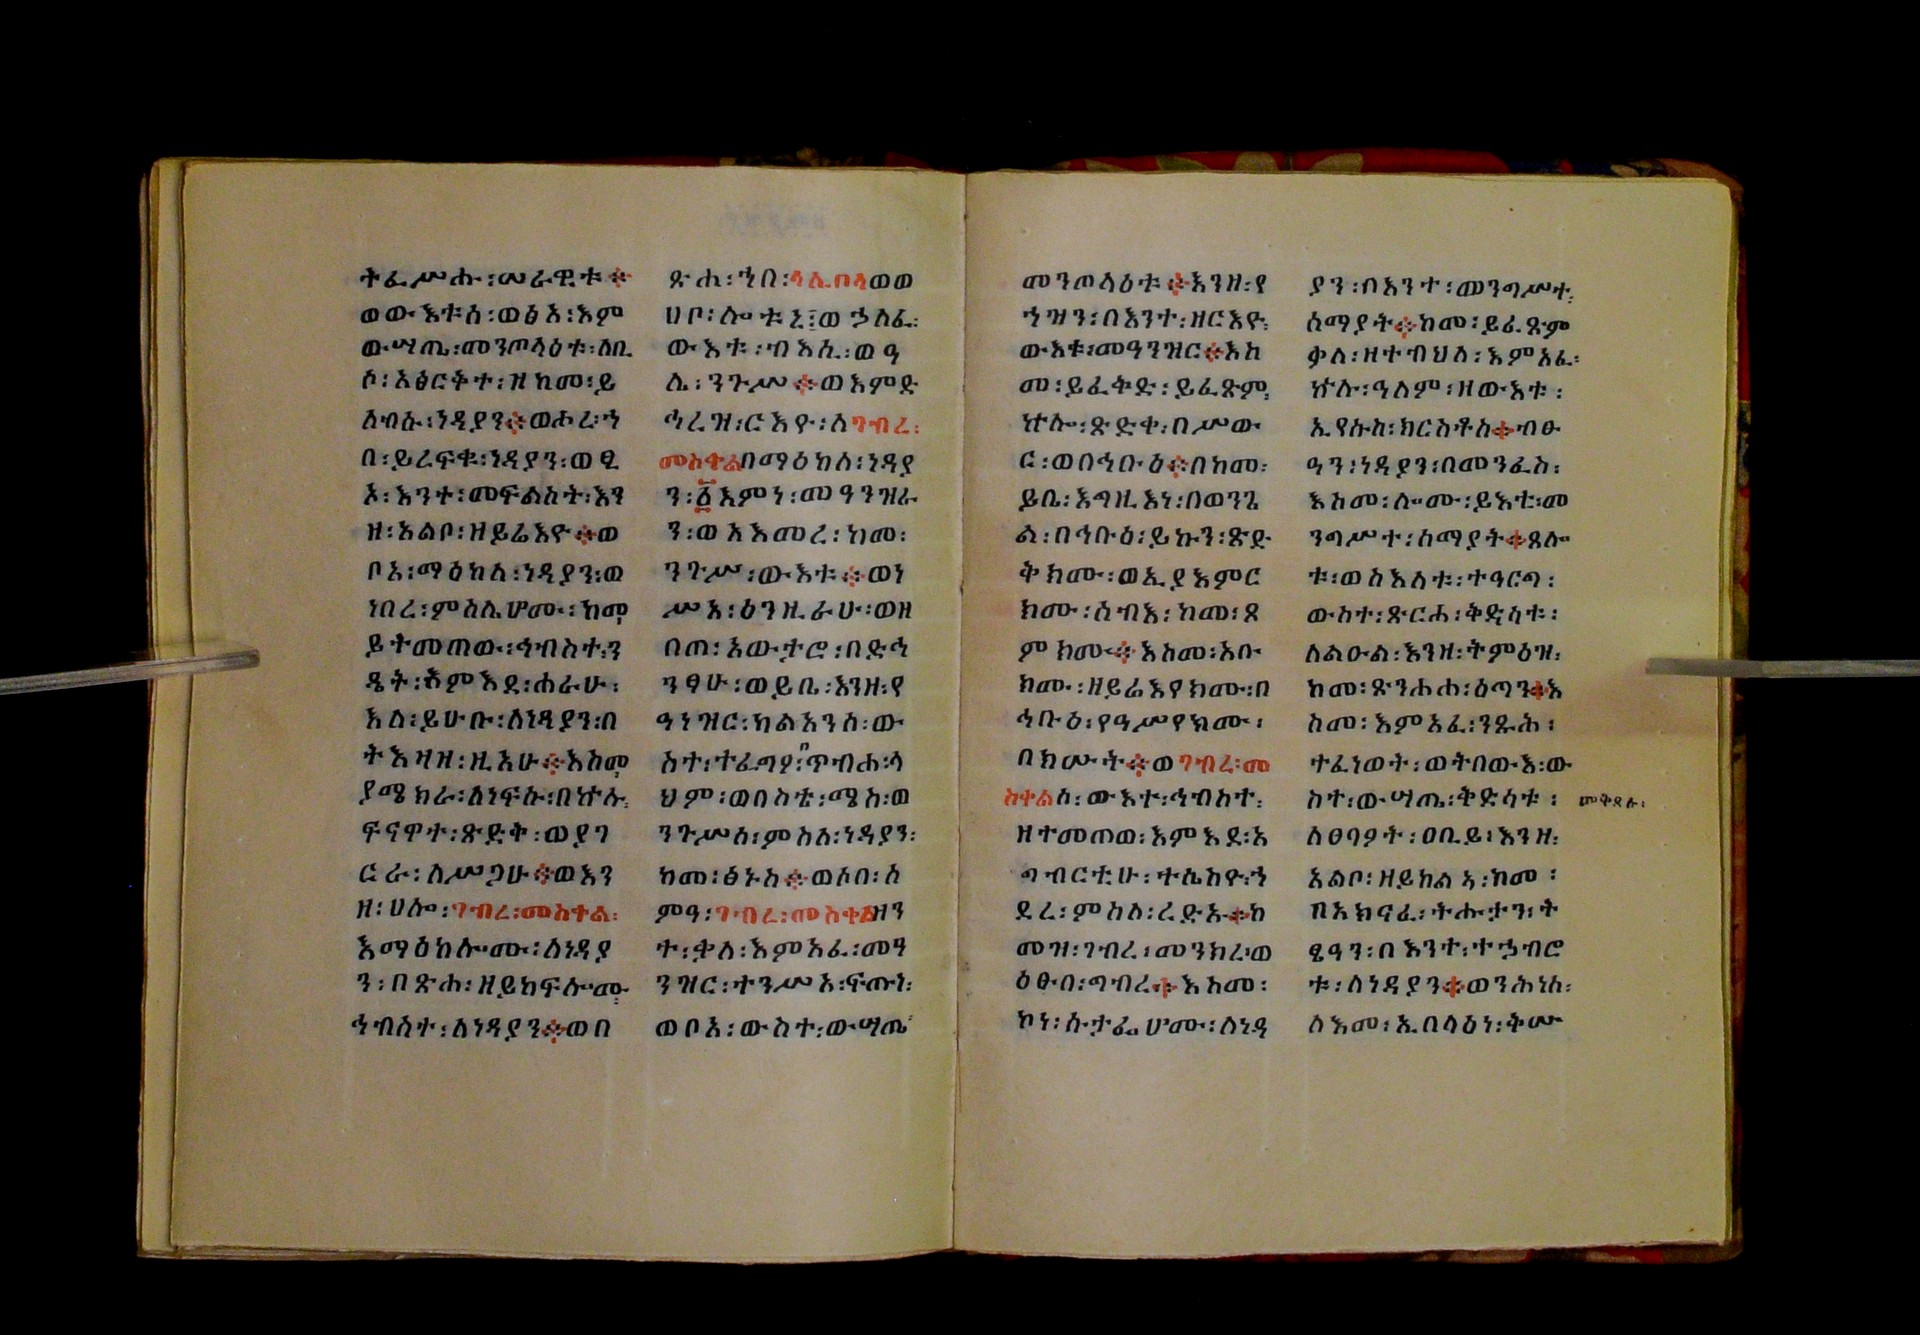 ትፌሥሑ፡መራዊቱ፨
ወውእቱሰ፡ወፅአ፡እም
ውሣጤ፡መንጦላዕቱ፡ለቢ
ሶ፡አፅርቅተ፡ዝ ከመ፡ይ
ለብሱ፡ነዳያን፨ወሖረ፡ኀ
በ፡ይረፍቁ፡ነዳያን፡ወፂ
ኦ፡እንተ፡መፍልስት፡እን
ዘ፡አልቦ፡ዘይሬእዮ፨ወ
ቦአ፡ማዕከለ፡ነዳያን፡ወ
ነበረ፡ምስሌሆሙ፡ከመ
ይትመጠው፡ኅብስተ፡ን
ዴት፡እምእደ፡ሐራሁ፡
እለ፡ይሁቡ፡ለነዳያን፡በ
ትእዛዘ፡ዚአሁ፨እስመ
ያሜክራ፡ለነፍሱ፡በኵሉ፡
ፍናዋተ፡ጽድቅ፡ወያገ
ርራ፡ለሥጋሁ፨ወእን
ዘ፡ሀሎ፡ገብረ፡መስቀል፡
እማዕከሎሙ፡ለነዳያ
ን፡በጽሐ፡ዘይከፍሎሙ
ኅብስተ፡ለነዳያን፨ወበ
ጽሐ፡ኀበ፡ላሊበላወወ
ሀቦ፡ሎቱኒ፤ወኃለፈ፡
ውእቱ፡ብእሲ፡ወዓ
ሊ፡ንጉሥ፨ወእምድ
ኅረዝ፡ርእዮ፡ለገብረ፡
መስቀልበማዕከለ፡ነዳያ
ን፡፩እምነ፡መዓንዝራ
ን፡ወአእመረ፡ከመ፡
ንጉሥ፡ውእቱ፨ወነ
ሥአ፡ዕንዚራሁ፡ወዘ
በጠ፡አውታሮ፡በድኅ
ንፃሁ፡ወይቤ፡እንዘ፡የ
ዓነዝር፡ካልአንሰ፡ው
ስተ፡ተፈግዖ፡ጥብሐ፡ላ
ህም፡ወበስቴ፡ሜስ፡ወ
ንጉሥሰ፡ምስለ፡ነዳያን፡
ከመ፡ፅኑስ፨ወሶበ፡ሰ
ምዓ፡ገብረ፡መስቀልዘን
ተ፡ቃለ፡እምአፈ፡መዓ
ንዝር፡ተንሥአ፡ፍጡነ፡
ወቦአ፡ውስተ፡ውሣጤ
መንጦላዕቱ፨እንዘ፡የ
ኀዝን፡በእንተ፡ዘርእዮ፡
ውእቱ፡መዓንዝር፨እስ
መ፡ይፈቅድ፡ይፈጽም፡
ኵሎ፡ጽድቀ፡በሥው
ር፡ወበኅቡዕ፨በከመ፡
ይቤ፡እግዚእነ፡በወንጌ
ል፡በኅቡዕ፡ይኩን፡ጽድ
ቅክሙ፡ወኢያእምር
ክሙ፡ሰብእ፡ከመ፡ጾ
ምክሙ፨እስመ፡አቡ
ክሙ፡ዘይሬእየክሙ፡በ
ኅቡዕ፡የዓሥየክሙ፡
በክሡት፨ወገብረ፡መ
ስቀልሰ፡ውእተ፡ኅብስተ፡
ዘተመጠወ፡እምእደ፡አ
ግብርቲሁ፡ተሴሰዮ፡ኀ
ደረ፡ምስለ፡ረድኡ፨ከ
መዝ፡ገብረ፡መንክረ፡ወ
ዕፁበ፡ግብረ፨እስመ፡
ኮነ፡ሱታፌሆሙ፡ለነዳ
ያን፡በእንተ፡መንግሥተ፡
ሰማያት፨ከመ፡ይፈጽም
ቃለ፡ዘተብህለ፡እምአፈ፡
ኵሉ፡ዓለም፡ዘውእቱ፡
ኢየሱስ፡ክርስቶስ፨ብፁ
ዓን፡ነዳያን፡በመንፈስ፡
እስመ፡ሎሙ፡ይእቲ፡መ
ንግሥተ፡ሰማያት፨ጸሎ
ቱ፡ወስእለቱ፡ተዓርግ፡
ውስተ፡ጽርሐ፡ቅድሳቱ፡
ለልዑል፡እንዘ፡ትምዕዝ፡
ከመ፡ጽንሐሐ፡ዕጣን፨እ
ስመ፡እምአፈ፡ንጹሕ፡
ተፈነወት፡ወትበውእ፡ው
ስተ፡ውሣጤ፡ቅድሳቱ፡
መቅደሱ፡
ለፀባዖት፡ዐቢይ፡እንዘ፡
አልቦ፡ዘይከልኣ፡ከመ፡
በአክናፈ፡ትሕታን፡ት
ፄዓን፡በእንተ፡ተኃብሮ
ቱ፡ለነዳያን፨ወንሕነሰ፡
ለእመ፡ኢበላዕነ፡ቅሡ